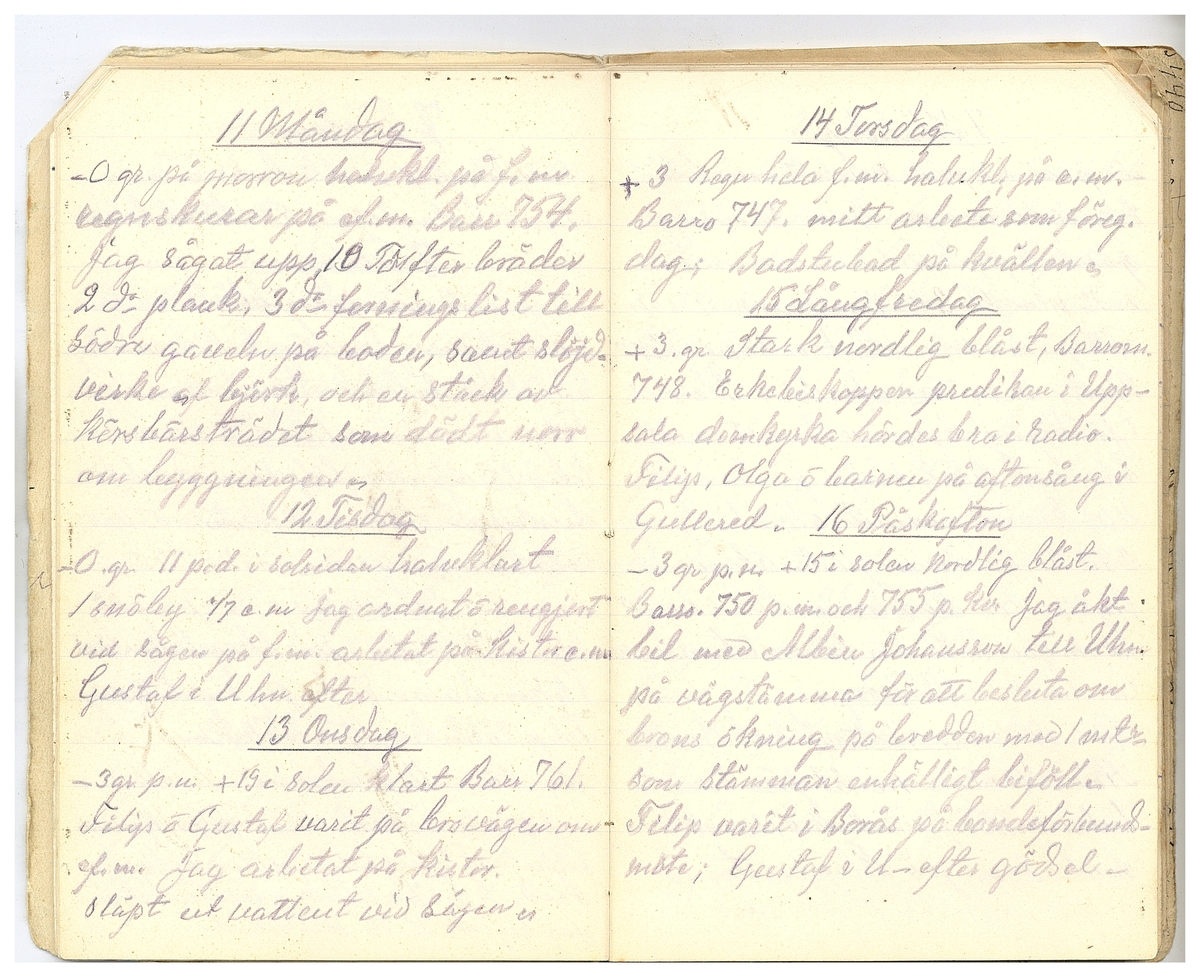 11 Måndag
-0 gr. på morron halvkl. på f.m.
regnskurar på ef.m. Barr 754.
Jag sågat upp 10 Tolfter bräder
2 do plank, 3 do fornings list till
södra gaveln på boden, samt slöjd-
virke af björk, och en stäck av
körsbärsträdet som dödt norr
om byggningen
12 Tisdag
-0 gr. 11 p.d. i solsidan halvklart
1 snöby e.m jag ordnat ö rengjort
vid sågen på f.m. arbetat på kistor e.m
Gustaf i Uhn efter
13 Onsdag
-3 gr p.m. +19 i solen klart Barr 761.
Filip ö Gustaf varit på brovägen om
ef.m. Jag arbetat på kistor.
släpt ut vattent vid sågen
5440
14 Torsdag
+3 Regn hela f.m. halvkl. på e.m.
Barro 747. mitt arbete som föreg.
dag; Badstubad på kvällen
15 Långfredag
+3. gr. Stark nordlig blåst, Barrom.
748. Erkebiskoppen predikan i Upp-
sala domkyrka hördes bra i radio.
Filip, Olga ö barnen på aftonsång i
Gullered. 16 Påskafton
-3 gr p.m. +15 i solen Nordlig blåst.
Barro. 750 p.m. och 755 p. kv. Jag åkt
bil med Albin Johansson till Uhn
på vägstämma för att besluta om
brons ökning på bredden med 1 mtr
som stämman enhälligt biföll
Filip varit i Borås på bondeförbunds-
möte; Gustaf i U- efter gödsel-